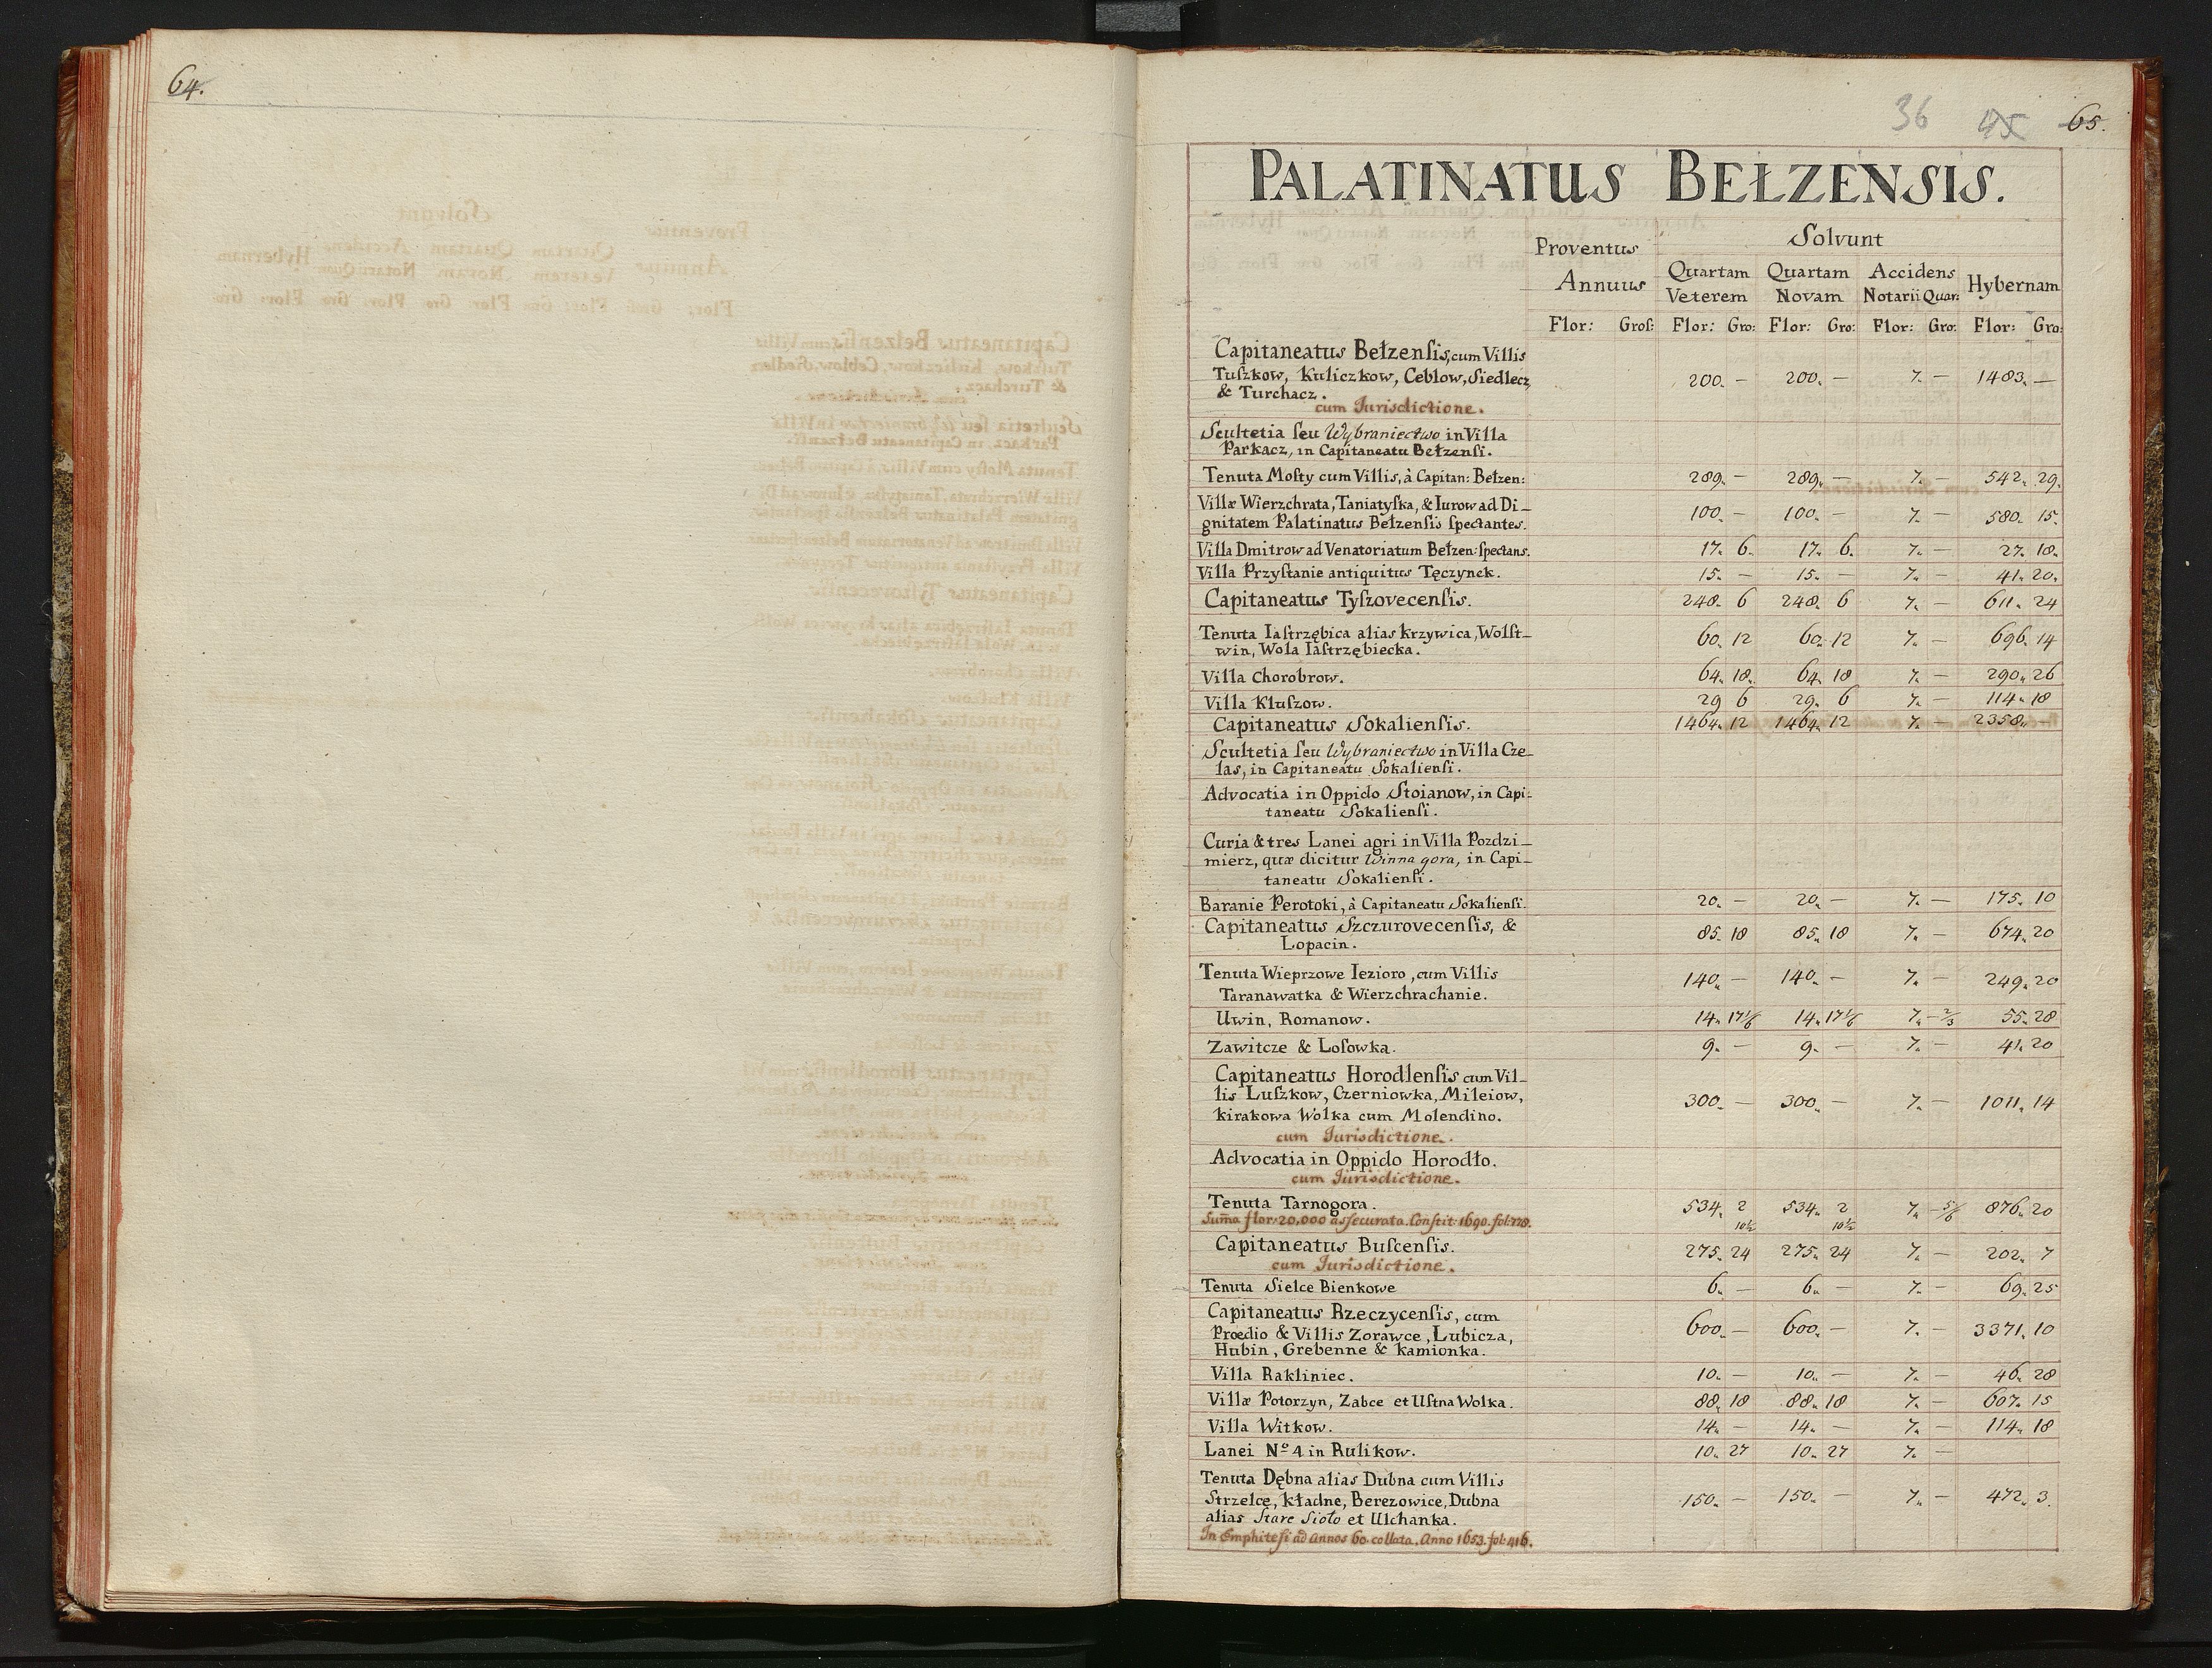 64.
36 45 65.
PALATINATUS BEŁZENSIS.
Proventus Annuus
Solvunt
Quartam Veterem
Quartam Novam
Accidens Notarii Quar:
Hybernam
Flor: Groſ: Flor: Gro: Flor: Gro: Flor: Gro: Flor: Gro:
Capitaneatus Bełzenſis, cum Villis
Tuſzkow, Kuliczkow, Ceblow, Siedlecz
& Turchacz. 200. — 200. — 7. — 1483. —
cum Jurisdictione.
Scultetia ſeu Wybraniectwo in Villa
Parkacz, in Capitaneatu Bełzenſi.
Tenuta Moſty cum Villis, à Capitan: Bełzen: 289. — 289. — 7. — 542. 29.
Villæ Wierzchrata, Taniatyſka, & Iurow ad Di_
gnitatem Palatinatus Bełzenſis ſpectantes. 100. — 100. — 7. — 580. 15.
Villa Dmitrow ad Venatoriatum Bełzen: ſpectans. 17. 6. 17. 6. 7. — 27. 18.
Villa Przyſtanie antiquitus Tęczynek. 15. — 15. — 7. — 41. 20.
Capitaneatus Tyſzovecenſis. 248. 6 248. 6 7. — 611. 24
Tenuta Iaſtrzębica alias Krzywica, Wolſt_
win, Wola Iaſtrzębiecka. 60. 12 60. 12 7. — 696. 14
Villa Chorobrow. 64. 18. 64. 18 7. — 290. 26
Villa Kluſzow. 29 6 29. 6 7. — 114. 18
Capitaneatus Sokalienſis. 1464. 12 1464. 12 7. — 2358. —
Scultetia ſeu Wybraniectwo in Villa Cze_
las, in Capitaneatu Sokalienſi.
Advocatia in Oppido Stoianow, in Capi_
taneatu Sokalienſi.
Curia & tres Lanei agri in Villa Pozdzi_
mierz, quæ dicitur Winna gora, in Capi_
taneatu Sokalienſi.
Baranie Perotoki, à Capitaneatu Sokalienſi. 20. — 20. — 7. — 175. 10
Capitaneatus Szczurovecenſis, &
Lopacin. 85. 18 85. 18 7. — 674. 20
Tenuta Wieprzowe Iezioro, cum Villis
Taranawatka & Wierzchrachanie. 140. — 140. — 7. — 249. 20
Uwin, Romanow. 14. 17 1/6 14. 17 1/6 7. — 2/3 55. 28
Zawitcze & Loſowka. 9. — 9. — 7. — 41. 20
Capitaneatus Horodlenſis cum Vil_
lis Luſzkow, Czerniowka, Mileiow,
Kirakowa Wolka cum Molendino. 300. — 300. — 7. — 1011. 14
cum Jurisdictione.
Advocatia in Oppido Horodło.
cum Jurisdictione.
Tenuta Tarnogora. 534. 2 534. 2 7. — 5/6 876. 20
Sum̄a flor: 20,000 aſſecurata. Conſtit: 1690. fol: 178. 10½ 10½
Capitaneatus Buſcenſis. 275. 24 275. 24 7. — 202. 7
cum Jurisdictione.
Tenuta Sielce Bienkowe 6. — 6. — 7. — 69. 25
Capitaneatus Rzeczycenſis, cum
Prœdio & Villis Zorawce, Lubicza,
Hubin, Grebenne & Kamionka. 600. — 600. — 7. — 3371. 10
Villa Rakliniec. 10. — 10. — 7. — 46. 28
Villæ Potorzyn, Zabce et Uſtna Wolka. 88. 18 88. 18 7. — 607. 15
Villa Witkow. 14. — 14. — 7. — 114. 18
Lanei Nº 4 in Rulikow. 10. 27 10. 27 7. —
Tenuta Dębna alias Dubna cum Villis
Strzelce, Kładne, Berezowice, Dubna
alias Stare Sioło et Ulchanka. 150. — 150. — 7. — 472. 3.
In Emphiteſi ad Annos 60. collata. Anno 1653. fol: 416.